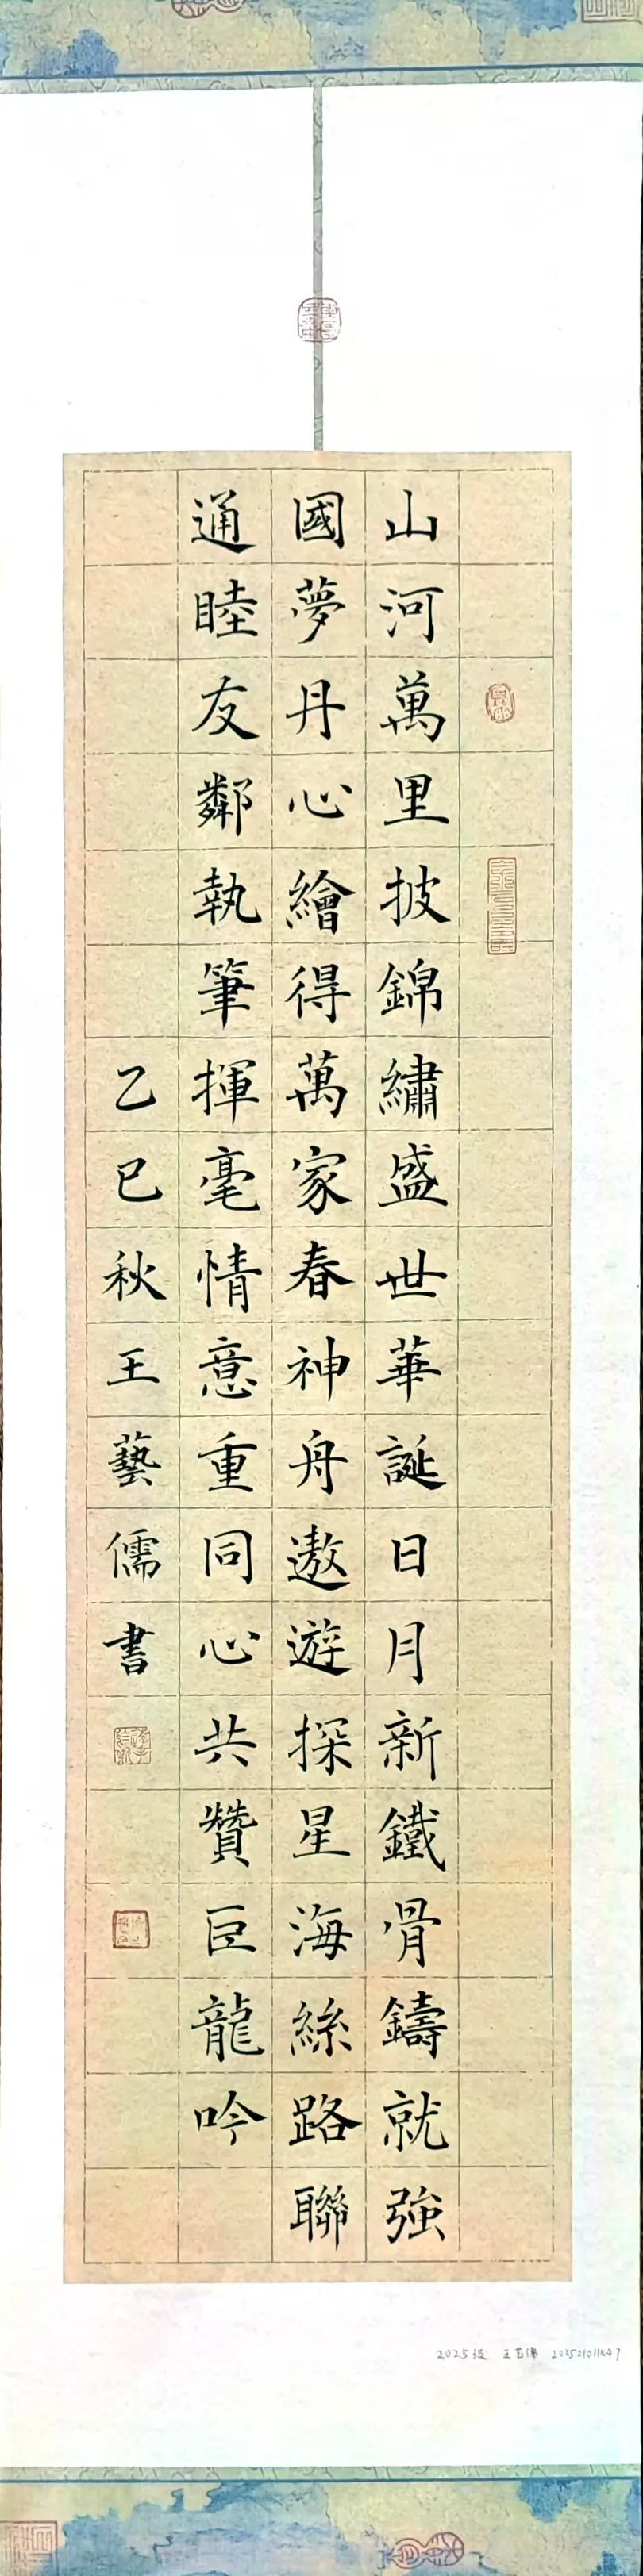 山河萬里披錦繡盛世華誕日月新鐵骨鑄就強
國夢丹心繪得萬家春神舟遨遊探星海絲路聯
通睦友鄰執筆揮毫情意重同心共贊巨龍吟
乙巳秋王藝儒書
2025级 王艺儒